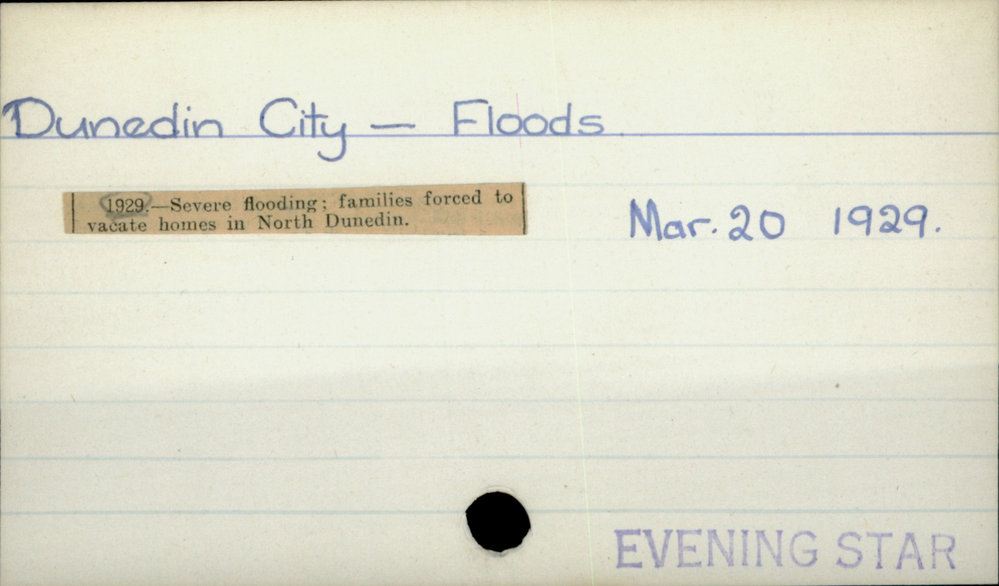 Dunedin City — Floods
1929.—Severe flooding; families forced to
vacate homes in North Dunedin.
Mar. 20 1929.
EVENING STAR